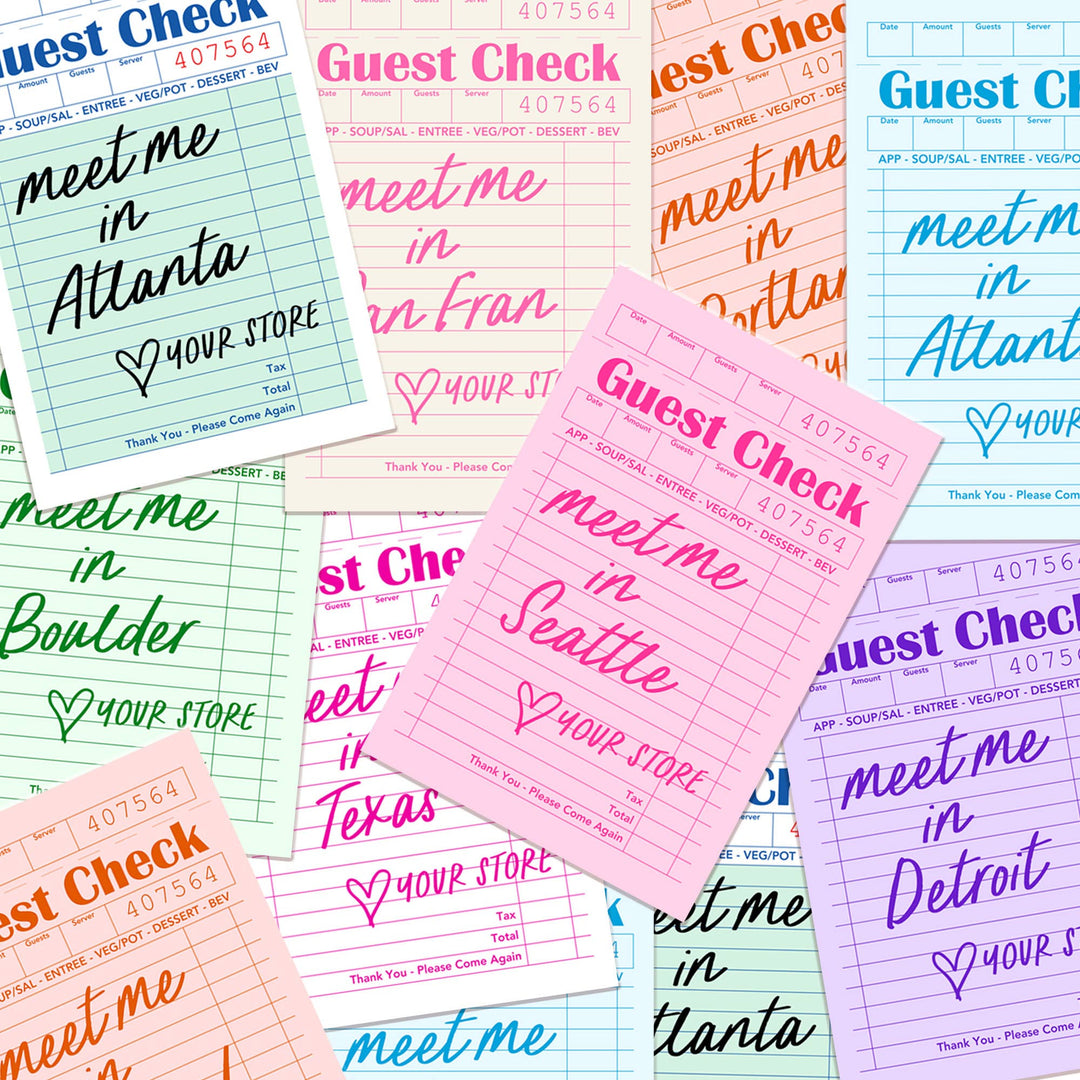 Guest Check
Amount Guests Server 407564
P - SOUP/SAL - ENTREE - VEG/POT - DESSERT - BEV
meet me
in
Atlanta
YOUR STORE
Tax
Total
Thank You - Please Come Again
Server 407564
Guest Check
Date Amount Guests Server 407564
PP - SOUP/SAL - ENTREE - VEG/POT - DESSERT - BEV
meet me
in
San Fran
YOUR STO
Thank You - Please Co
Guests
uest Chec
Amount Guests Server 407
SOUP/SAL - ENTREE - VEG/POT - DES
meet me
in
Portlan
YO
Date Amount Guests Server
Guest Ch
Date Amount Guests Server
APP - SOUP/SAL - ENTREE - VEG/PO
meet m
in
Atlant
YOUR
Thank You - Please Com
Date
APP -
DESSERT - BE
meet me
in
Boulder
YOUR STORE
Tha
est Chec
Guests Server
AL - ENTREE - VEG/P
eet
in
Texas
YOUR STORE
Tax
Total
Thank You - Please Come Again
Date Amount Guests Server 407564
Guest Check
Date Amount Guests Server 407564
APP - SOUP/SAL - ENTREE - VEG/POT - DESSERT - BEV
meet me
in
Seattle
YOUR STORE
Tax
Total
Thank You - Please Come Again
Guests Server 407564
Guest Check
Date Amount Guests Server 4075
APP - SOUP/SAL - ENTREE - VEG/POT - DESSERT
meet me
in
Detroit
YOUR S
Thank You - Please Come A
Server 407564
est Check
Guests Server 407564
UP/SAL - ENTREE - VEG/POT - DESSERT - BEV
meet me
in
meet me
Ch
erver
EE - VEG/POT
eet me
in
tlanta